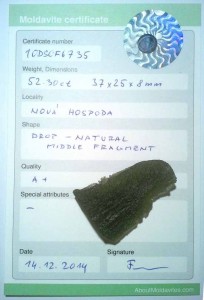 Moldavite certificate
Certificate number
10DSOF6735
Weight, Dimensions
52.30ct 37x25x8mm
Locality
NOVÁ HOSPODA
Shape
DROP - NATURAL
MIDDLE FRAGMENT
Quality
A+
Special attributes
-
Date
Signature
14.12.2014
AboutMoldavites.com